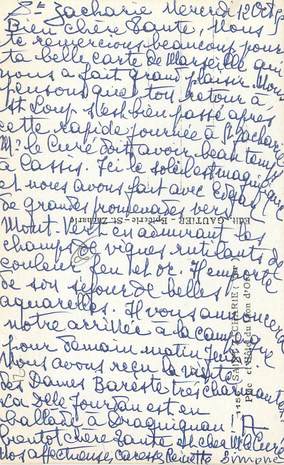 St Zacharie Mercredi 12 Oct
Bien chère Tante, Nous
te remercions beaucoup pour
ta belle carte de Marseille qui
nous a fait grand plaisir. Nous
pensons que ton retour à
St Loup s'est bien passé après
cette rapide journée à St Zacharie
Mr le Curé doit avoir beau temps
à Cassis. Ici le soleil est magnifique
et nous avons fait avec Edgar
de grandes promenades vers
Mont. Vert en admirant les
champs de vignes rutilants de
couleur feu et or. Il emporte
de son séjour de belles
aquarelles. Il vous annoncera
notre arrivée à la campagne
pour demain matin Jeudi
Nous avons reçu la visite
des Dames Bareste très charmantes
La Delle Jourdan est en
ballade à Draguignan! A
bientôt chère Tante et chez Mr le Curé
Nos affectueuses caresses
Edit. GAUTIER - Epicerie - St-Zacharie
SAINT-ZACHARIE (Var)
Place et Hôtel du Lion d'Or